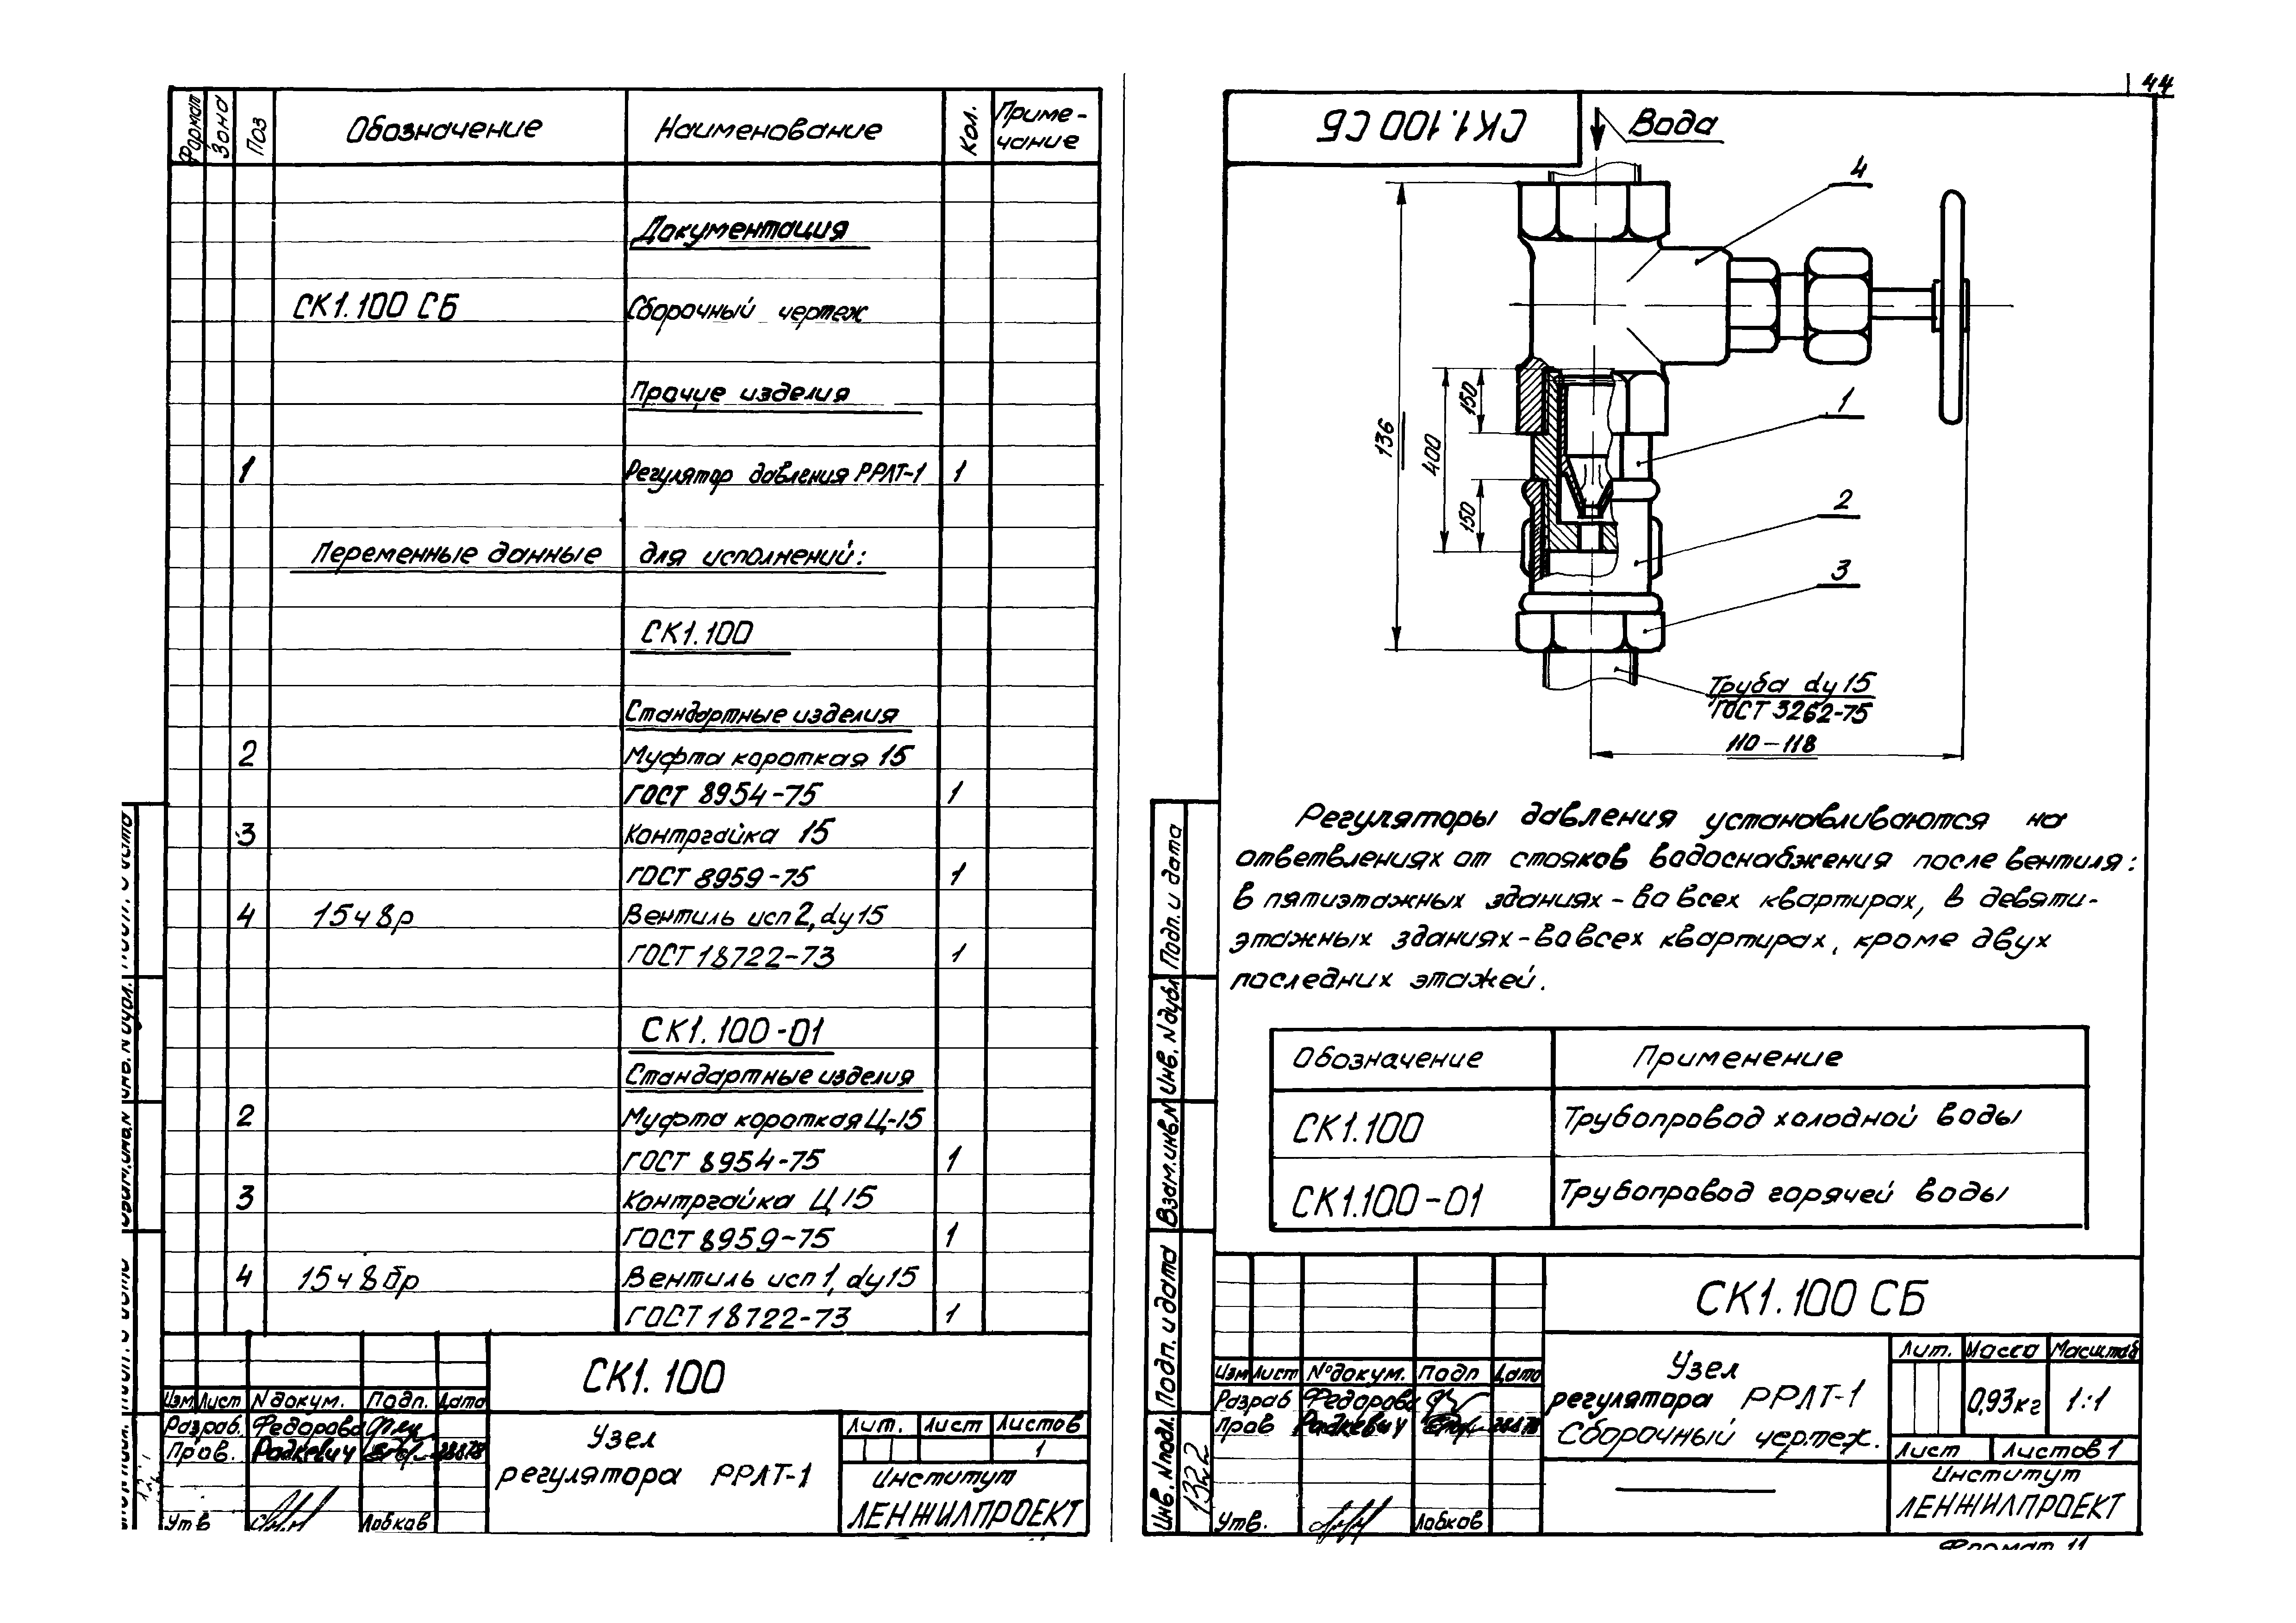 Формат Зона Поз Обозначение Наименование Кол. Приме-
чание
Документация
СК1.100 СБ Сборочный чертеж
Прочие изделия
1 Регулятор давления РРЛТ-1 1
Переменные данные для исполнений:
СК1.100
Стандартные изделия
2 Муфта короткая 15
ГОСТ 8954-75 1
3 Контргайка 15
ГОСТ 8959-75 1
4 15ч8р Вентиль исп2, dу15
ГОСТ 18722-73 1
СК1.100-01
Стандартные изделия
2 Муфта короткая Ц-15
ГОСТ 8954-75 1
3 Контргайка Ц15
ГОСТ 8959-75 1
4 15ч8бр Вентиль исп1, dу15
ГОСТ 18722-73 1
СК1.100
Изм Лист N докум. Подп. Дата
Разраб. Федорова
Пров. Радкевич
Утв Лобков
Узел
регулятора РРЛТ-1
Лит. Лист Листов
1
Институт
ЛЕНЖИЛПРОЕКТ
44
СК1.100 СБ
Вода
4
1
2
3
136
400
150
150
Труба dу 15
ГОСТ 3262-75
110-118
Регуляторы давления устанавливаются на
ответвлениях от стояков водоснабжения после вентиля:
в пятиэтажных зданиях - во всех квартирах, в девяти-
этажных зданиях - во всех квартирах, кроме двух
последних этажей.
Обозначение Применение
СК1.100 Трубопровод холодной воды
СК1.100-01 Трубопровод горячей воды
Подп. и дата
Инв. N дубл
Взам. инв. N
Подп. и дата
Инв. N подл.
1322
СК1.100 СБ
Изм Лист N° докум. Подп Дата
Разраб Федорова
Пров Радкевич
Утв. Лобков
Узел
регулятора РРЛТ-1
Сборочный чертеж.
Лит. Масса Масштаб
0,93кг 1:1
Лист Листов 1
Институт
ЛЕНЖИЛПРОЕКТ
Формат 11